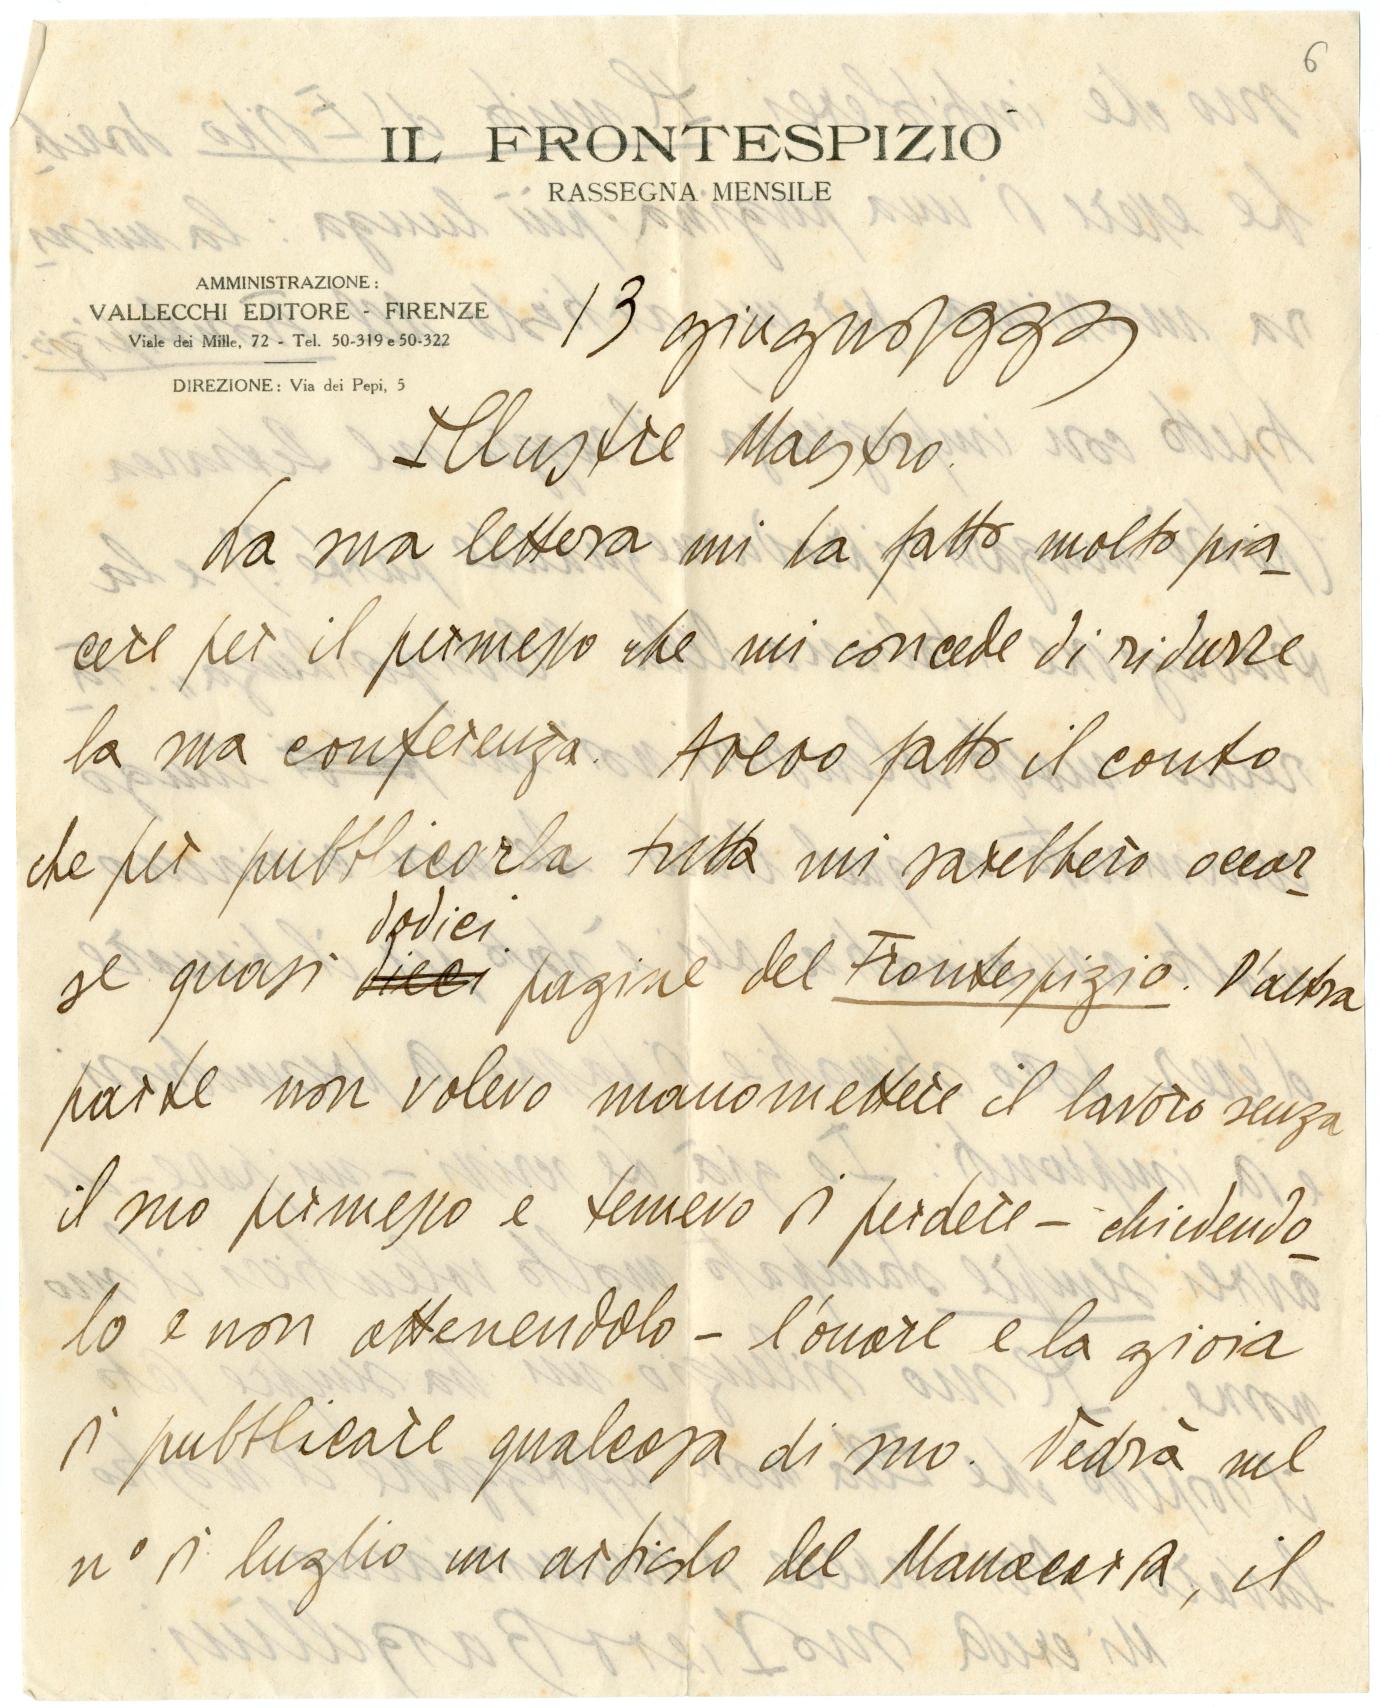 6
IL FRONTESPIZIO
RASSEGNA MENSILE
AMMINISTRAZIONE:
VALLECCHI EDITORE - FIRENZE
Viale dei Mille, 72 - Tel. 50-319 e 50-322
DIREZIONE: Via dei Pepi, 5
13 giugno
Illustre Maestro.
La sua lettera mi ha fatto molto pia
cere per il permesso che mi concede di ridurre
la sua conferenza. Avevo fatto il conto
che per pubblicarla tutta mi sarebbero occor
dodici
se quasi dieci pagine del Frontespizio. D'altra
parte non volevo manomettere il lavoro senza
il suo permesso e temevo di perdere – chiedendo
lo e non ottenendolo – l'onore e la gioia
di pubblicare qualcosa di suo. Vedrà nel
n° di luglio un articolo del Manacorda, il